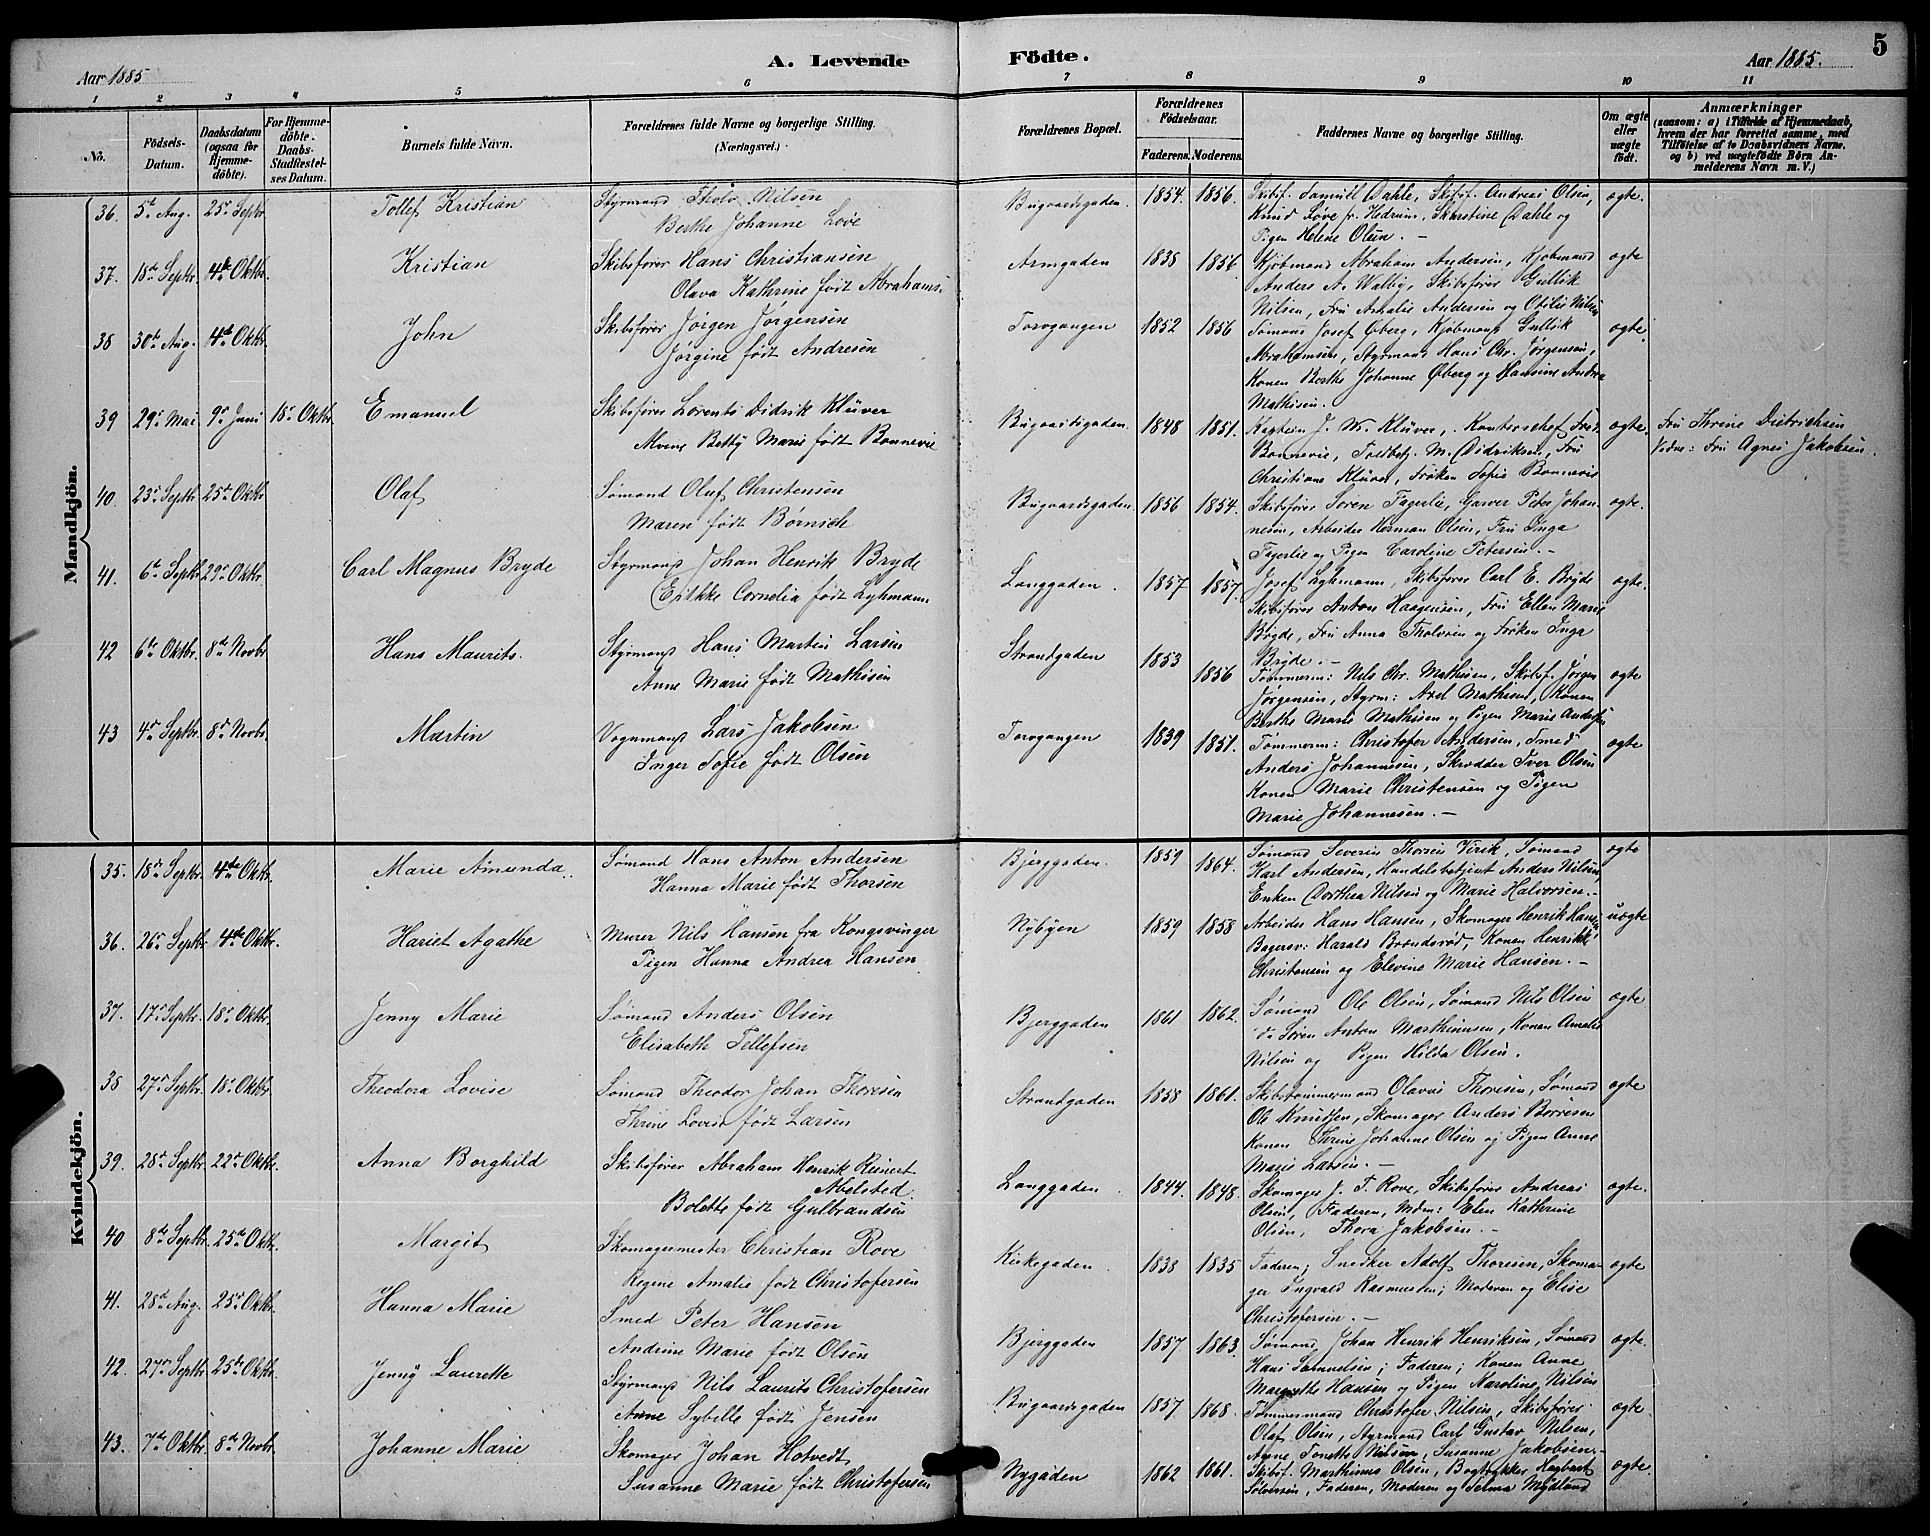 Aar 1885
A. Levende
Födte.
Aar 1885.
5
1 2 3 4 5 6 7 8 9 10 11
No.
Födsels-Datum.
Daabsdatum (ogsaa for Hjemme-döbte).
For Hjemme-döbte. Daabs-Stadfæstel-ses Datum.
Barnets fulde Navn.
Forældrenes fulde Navne og borgerlige Stilling. (Næringsvei.)
Forældrenes Bopæl.
Forældrenes Födselsaar.
Faderens. Moderens.
Faddernes Navne og borgerlige Stilling.
Om ægte eller uægte födt.
Anmærkninger
(saasom: a) i Tilfælde af Hjemmedaab,
hvem der har forrettet samme, med
Tilföielse af to Daabsvidners Navne,
og b) ved uægtefödte Börn An-
melderens Navn m. V.)
Mandkjön.
36. 5te Aug. 25de Septbr. Tollef Kristian Styrmand Tholv Nilsen Bugaardsgaden. 1854. 1856. Skibsf. Samuel Dahle, Skibsf. Andreas Olsen, ægte.
Berthe Johanne Løve Knud Løve fr. Hedrum, Skarstine Dahle og
Pigen Helene Olsen. —
37. 18de Septbr. 4de Oktbr. Kristian Skibsfører Hans Christiansen Armgaden 1838 1856. Kjøbmand Abraham Andersen, Kjøbmand ægte
Olava Kathrine født Abrahams. Anders A. Walby, Skibsfører Gullik
Nilsen, Fru Amalie Andersen og Otilie Nilsen
38 30te Aug. 4de Oktbr. John Skibsfører Jørgen Jørgensen Torvgangen 1852 1856 Sømand Josef Øberg, Kjøbmand Gullik ægte.
Jørgine født Andresen Abrahamsen, Styrmand Hans Chr. Jørgensen,
Konen Berthe Johanne Øberg og Hansine Andrea
Mathisen.
39 29de Mai 9de Juni 18de Oktbr. Emanuel Skibsfører Lorents Didrik Klüver Bugaardsgaden. 1848 1851. Kaptein J. W. Klüver, Kontorschef Fritz ægte. Fru Thrine Dietrichsen
Alvene Betty Marie født Bonnevie Bonnevie, Toldbetj. M. Didriksen, Fru Vidne: Fru Agnes Jakobsen.
Christiane Klüver, Frøken Sofie Bonnevie
40. 23de Septbr 25de Oktbr Olaf Sømand Oluf Christensen Bugaardsgaden. 1856 1854. Skibsfører Søren Fagerlie, Garver Peter Johan- ægte.
Maren født Børnich nesen, Arbeider Herman Olsen, Fru Inga
Fagerlie og Pigen Caroline Petersen. —
41. 6te Septbr 29de Oktbr. Carl Magnus Bryde Styrmand Johan Henrik Bryde Langgaden. 1857 1857. Josef Lyhmann, Skibsfører Carl E. Bryde ægte.
Cornelia født Lyhmann Skibsfører Anton Haagensen, Fru Ellen Marie
Bryde, Fru Anna Tholvsen og Frøken Inga
Bryde. —
42 6te Oktbr. 8de Novbr. Hans Maurits. Styrmand Hans Martin Larsen Strandgaden 1853 1856 Tømmerm: Nils Chr. Mathisen, Skibsf. Jørgen ægte
Anne Marie født Mathisen Jørgensen, Styrm: Axel Mathisen, Konen
Berthe Marie Mathisen og Pigen Marie Andersen
43 4de Septbr. 8de Novbr. Martin Vognmand Lars Jakobsen Torvgangen 1839 1851. Tømmerm: Christofer Andersen, Smed ægte
Inger Sofie født Olsen Anders Johannesen, Skrædder Iver Olsen
Konen Marie Christensen og Pigen
Marie Johannesen. —
Kvindekjön.
35. 18de Septbr. 4de Oktbr. Marie Amunda. Sømand Hans Anton Andersen Bjerggaden. 1859 1864. Sømand Severin Thorsen Virik, Sømand ægte
Hanna Marie født Thorsen Karl Andersen, Handelsbetjent Anders Nilsen
Enken Dorthea Nilsen og Marie Halvorsen. —
36. 26de Septbr. 4de Oktbr. Hariet Agathe Murer Nils Hansen fra Kongsvinger Nybyen 1859 1858 Arbeider Hans Hansen, Skomager Henrik Hansen uægte
Pigen Hanna Andrea Hansen Bagersv: Harald Brændsrød, Konen Henrikke
Christensen og Elevine Marie Hansen. —
37. 17de Septbr. 18de Oktbr. Jenny Marie Sømand Anders Olsen Bjerggaden 1861 1862. Sømand Ole Olsen, Sømand Nils Olsen ægte
Elisabeth Tellefsen Do Søren Anton Marthinsen, Konen Amalie
Nilsen og Pigen Hilda Olsen.
38 27de Septbr. 18de Oktbr. Theodora Lovise Sømand Theodor Johan Thoresen Strandgaden 1858 1861. Skibstømmermand Olavus Thoresen, Sømand ægte
Thrine Lovise født Larsen Ole Knudsen, Skomager Anders Børresen
Konen Thrine Johanne Olsen og Pigen Anne
Marie Larsen. —
39. 28de Septbr. 22de Oktbr. Anna Borghild Skibsfører Abraham Henrik Reinert Langgaden 1844. 1848. Skomager J. F. Rove, Skibsfører Andreas ægte.
Abelsted. Olsen, Faderen, Mdm: Elen Kathrine
Bolette født Gulbrandsen Olsen, Thora Jakobsen. —
40 8de Septbr. 25de Oktbr. Margit Skomagermester Christian Rove Kirkegaden 1838 1835 Faderen, Snedker Adolf Thoresen, Skoma- ægte
Regine Amalie født Christofersen ger Ingvald Rasmussen; Moderen og Elise
Christofersen. —
41. 28de Aug. 25de Oktbr. Hanna Marie Smed Peter Hansen Bjerggaden 1857 1863. Sømand Johan Henrik Henriksen, Sømand ægte.
Andrine Marie født Olsen Hans Samuelsen; Faderen; Konen Anne
Margrethe Hansen og Pigen Karoline Nilsen
42. 27de Septbr 25de Oktbr. Jenny Laurette Styrmand Nils Laurits Christofersen Bugaardsgaden 1857 1868. Tømmermand Christofer Nilsen, Skibsfører ægte.
Anne Sybille født Jensen Olaf Olsen, Styrmand Carl Gustav Nilsen,
Agne Tonette Nilsen, Susanne Jakobsen. —
43. 7de Oktbr. 8de Novbr. Johanne Marie Skomager Johan Hotvedt Nygaden 1862 1861. Skibsf. Marthinus Olsen, Bogtrykker Hagbart ægte.
Susanne Marie født Christofersen Sølversen, Faderen, Moderen og Selma Mydland